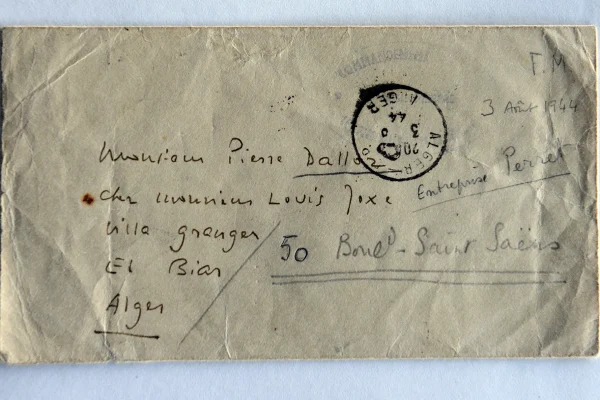 F.M
3 Août 1944
ALGER
ALGER
3
44
Monsieur Pierre Dalloz
Entreprise Perret
chez monsieur Louis Joxe
Villa granger
50 Boul^d - Saint Saëns
El Biar
Alger